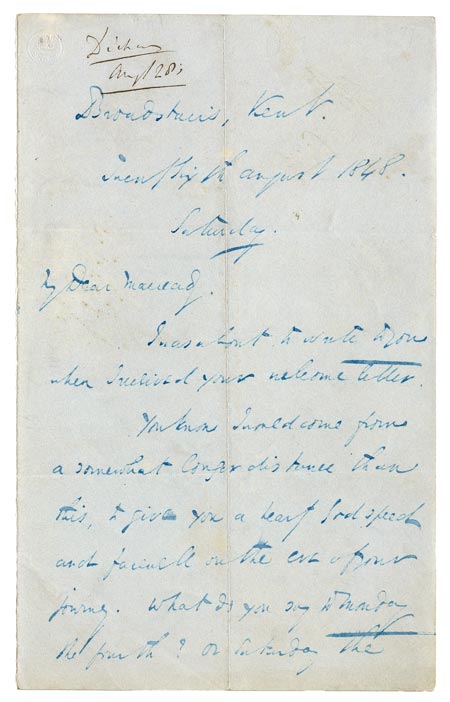 Dickens
Augt 28s
Broadstairs, Kent.
Twenty Sixth August 1848.
Saturday.
My Dear Macready.
I was about to write to you
when I received your welcome letter.
You know I would come from
a somewhat longer distance than
this, to give you a hearty God speed
and farewell on the eve of your
journey. What do you say to Monday
the fourth? or Saturday the